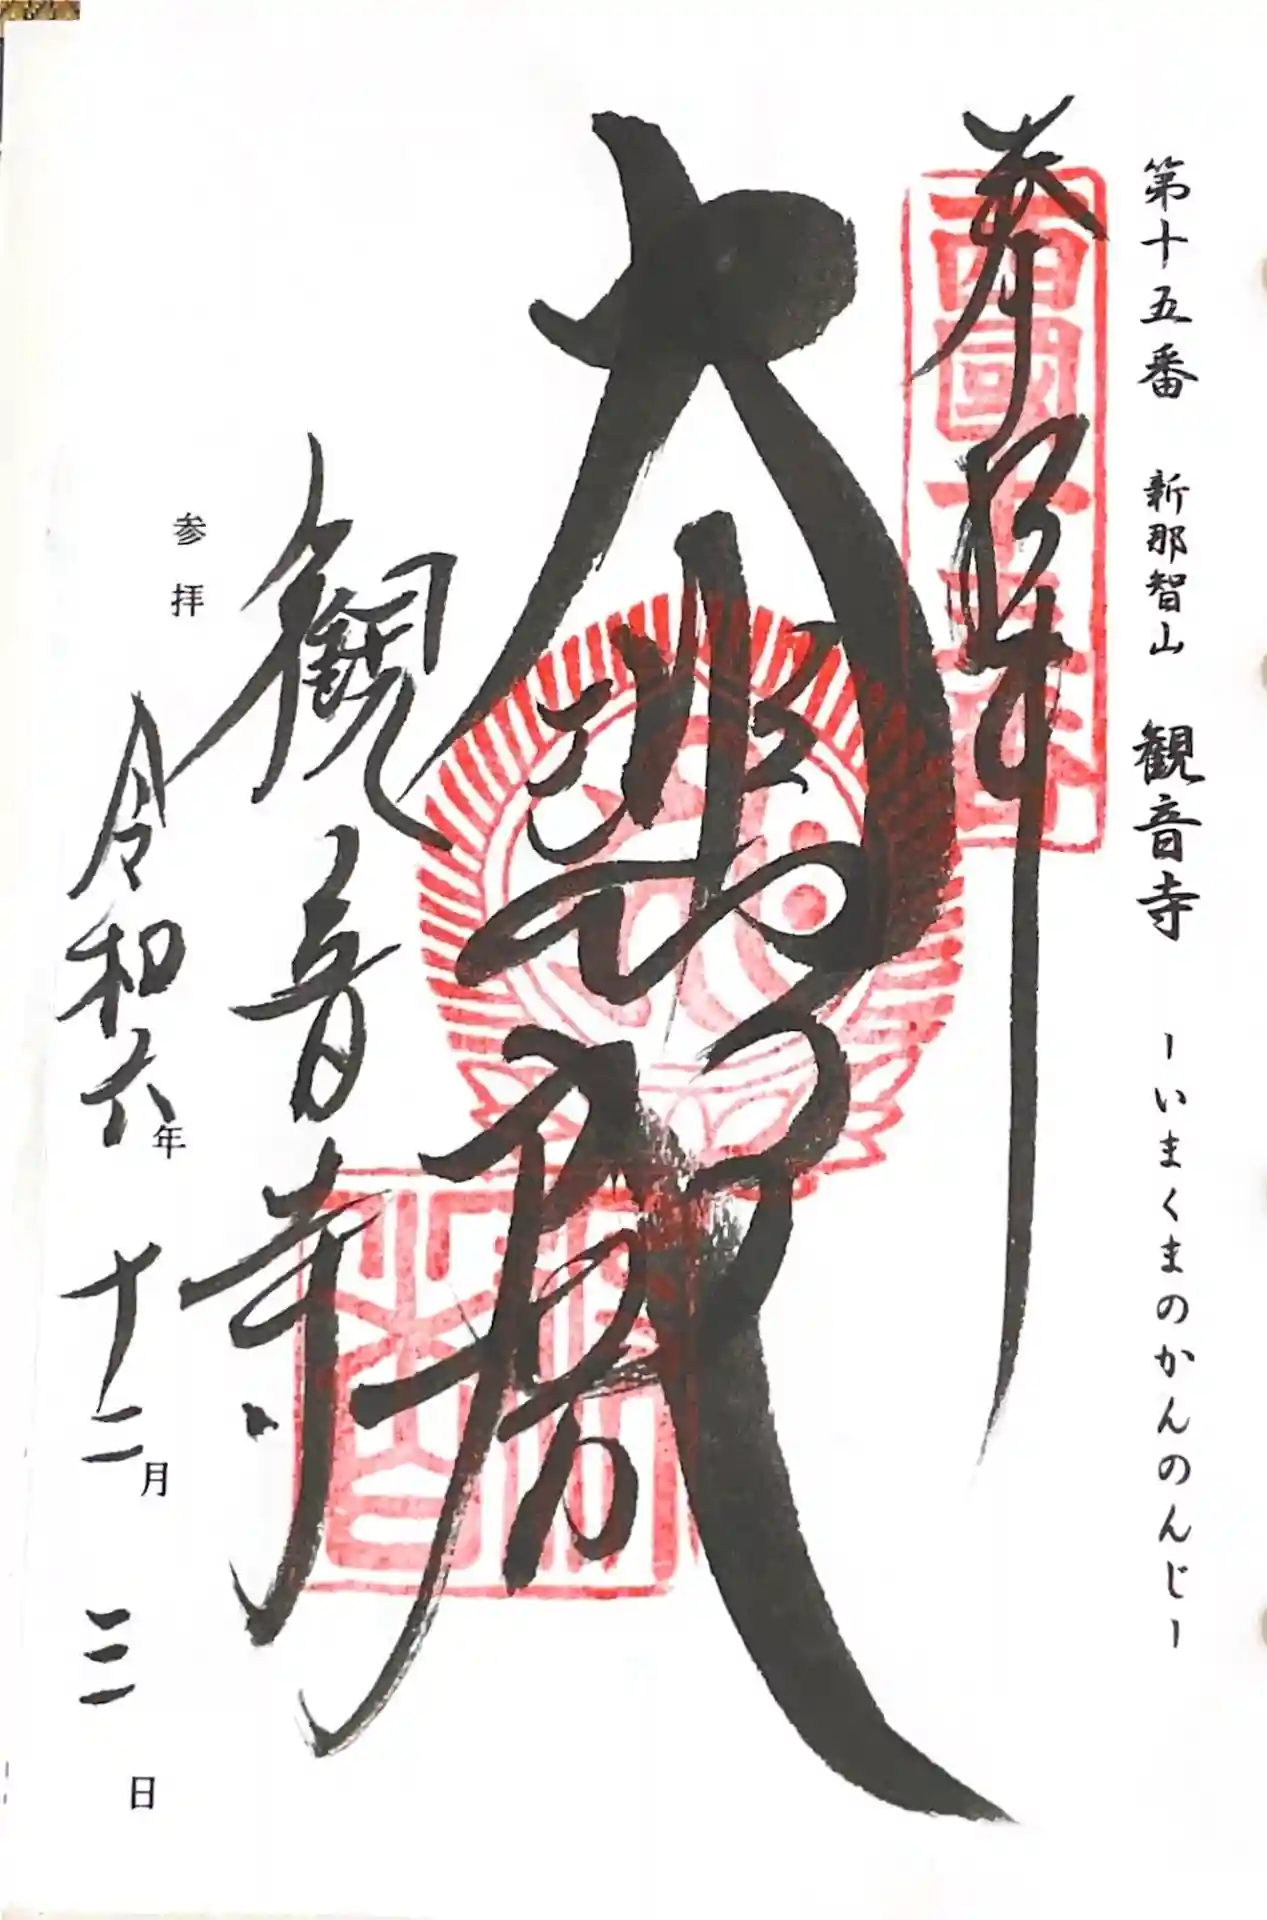 第十五番 新那智山 観音寺 ーいまくまのかんのんじー
奉拝
西國十五番
大悲殿
観音寺
参拝 令和六年 十二月 三日